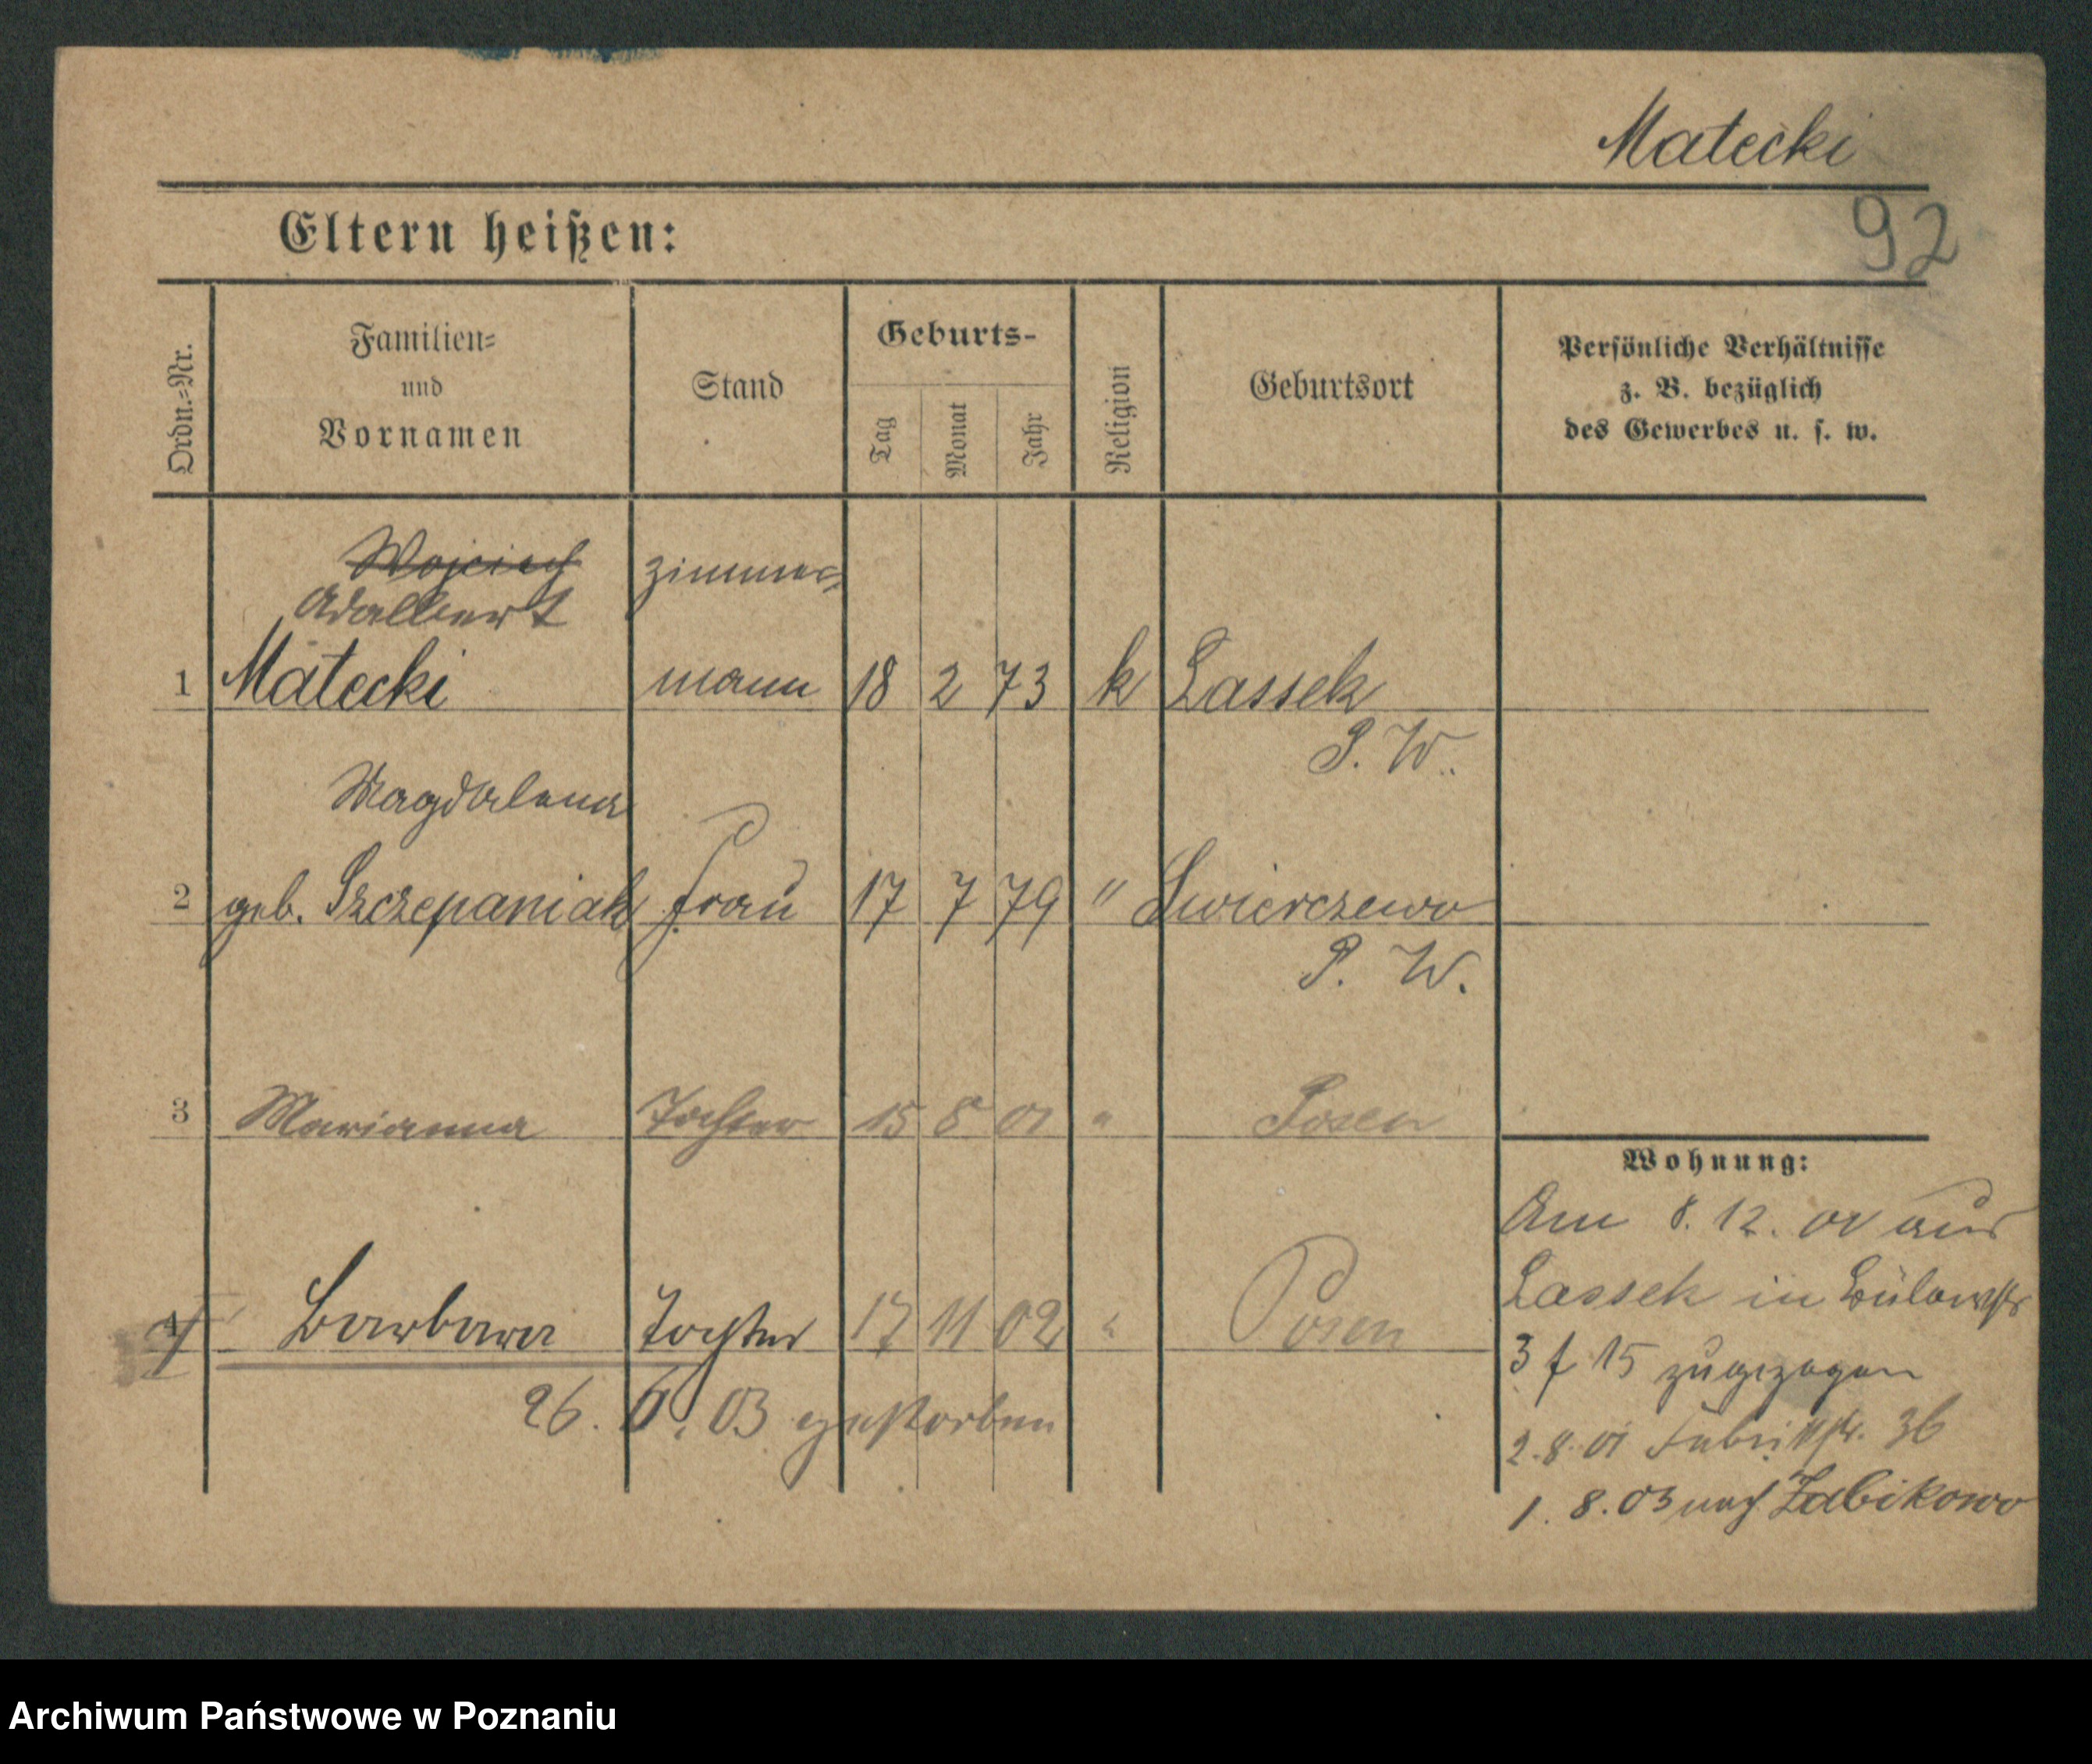 Matecki
92
Eltern heißen:
Ordn.=Nr.
Familien=
und
Vornamen
Stand
Geburts-
Tag
Monat
Jahr
Religion
Geburtsort
Persönliche Verhältnisse
z. B. bezüglich
des Gewerbes u. s. w.
Wojciech
Adalbert
zimmer=
1 Matecki mann 18 2 73 k Lassek
P. W.
Magdalena
2 geb. Szczepaniak Frau 17 7 79 " Swierczewo
P. W.
3 Marianna Tochter 15 8 01 " Posen
Wohnung:
Am 8. 12. 00 aus
Lassek in Bülowstr
4 Barbara Tochter 17 11 02 " Posen
3 f 15 zugezogen
26. 6. 03 gestorben
2. 8. 01 Fabrikstr. 36
1. 8. 03 nach Zabikowo
Archiwum Państwowe w Poznaniu